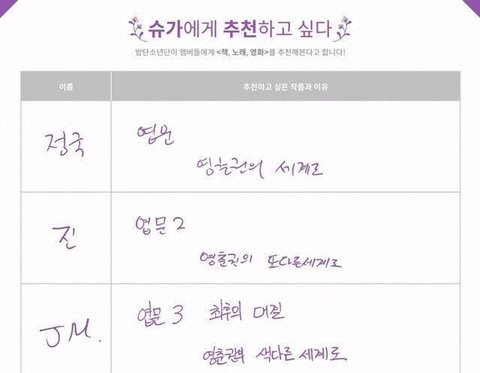 슈가에게 추천하고 싶다
방탄소년단이 멤버들에게 <책, 노래, 영화>를 추천해본다고 합니다!
이름 추천하고 싶은 작품과 이유
정국 엽문
영춘권의 세계로
진 엽문 2
영춘권의 또다른세계로
JM. 엽문 3 최후의 대결
영춘권의 색다른 세계로